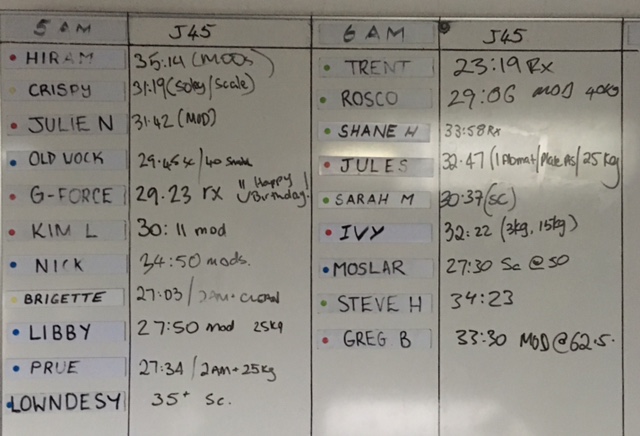 5 AM J45 6 AM J45
HIRAM 35:14 (MODS)
CRISPY 31:19 (50kg/scale)
JULIE N 31:42 (MOD)
OLD VOCK 29.45 sc/40
G-FORCE 29.23 rx "Happy Birthday!
KIM L 30:11 mod
NICK 34:50 mods.
BRIGETTE 27:03/2AM+CLEAN
LIBBY 27:50 mod 25kg
PRUE 27:34/2AM+25kg
LOWNDESY 35+ Sc.
TRENT 23:19 Rx
ROSCO 29:06 MOD 40kg
SHANE H 33:58 Rx
JULES 32:47 (1 /25kg
SARAH M 30:37 (SC)
IVY 32:22 (3kg, 15kg)
MOSLAR 27:30 Sc @ 50
STEVE H 34:23
GREG B 33:30 MOD @ 62.5.